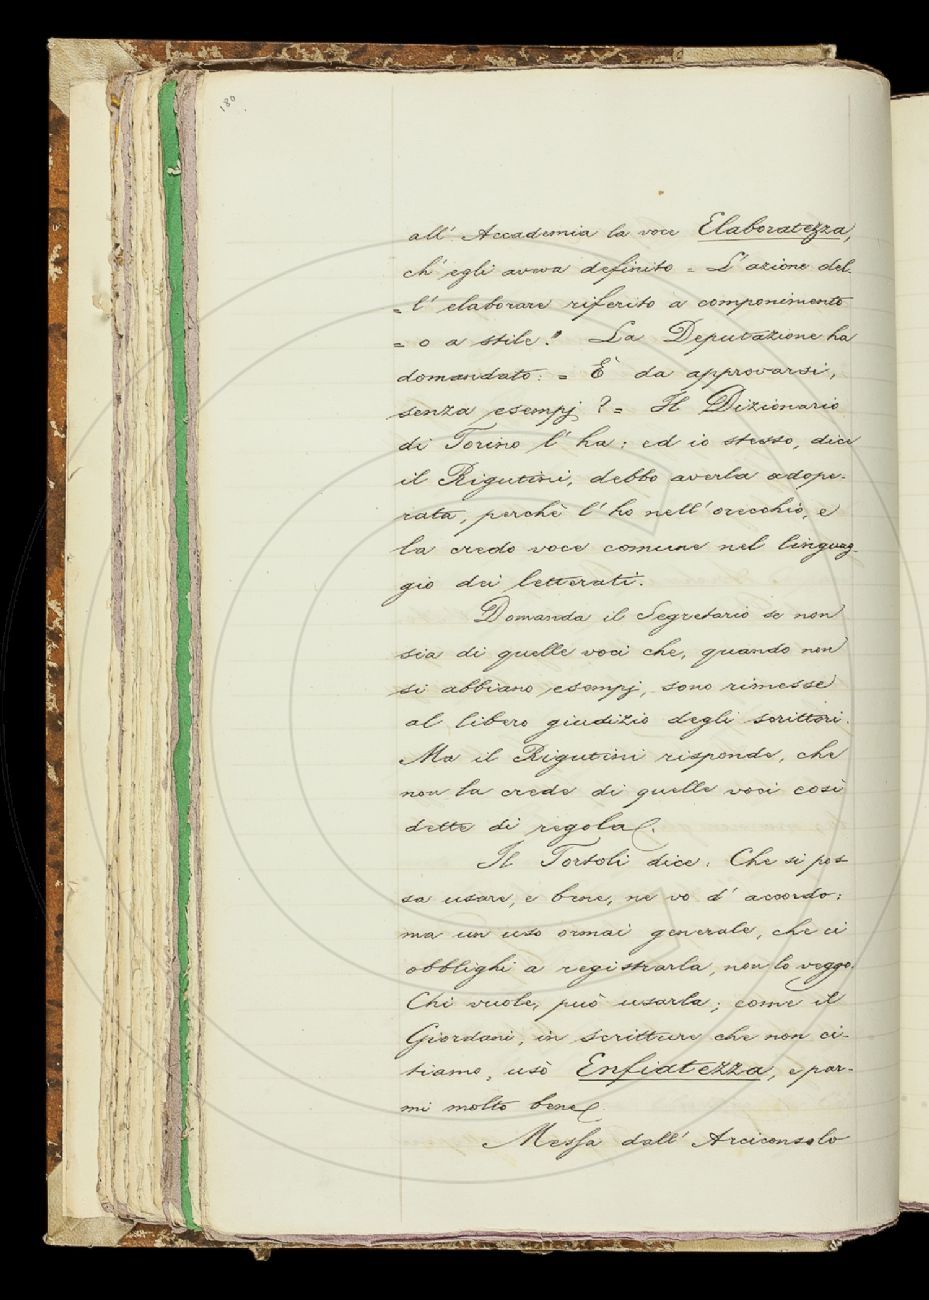 180
all' Accademia la voce Elaboratezza,
ch' egli aveva definito = L' azione del-
= l' elaborare riferito a componimento
= o a stile." La Deputazione ha
domandato: = È da approvarsi,
senza esempj? = Il Dizionario
di Torino l' ha: ed io stesso, dice
il Rigutini, debbo averla adope-
rata, perchè l' ho nell' orecchio, e
la credo voce comune nel linguag-
gio dei letterati.
Domanda il Segretario se non
sia di quelle voci che, quando non
si abbiano esempj, sono rimesse
al libero giudizio degli scrittori.
Ma il Rigutini risponde, che
non la crede di quelle voci così
dette di regola.
Il Tortoli dice: Che si pos-
sa usare, e bene, ne vo d' accordo:
ma un uso ormai generale, che ci
obblighi a registrarla, non lo veggo.
Chi vuole, può usarla; come il
Giordani, in scritture che non ci-
tiamo, usò Enfiatezza, e par-
mi molto bene.
Messa dall' Arciconsolo